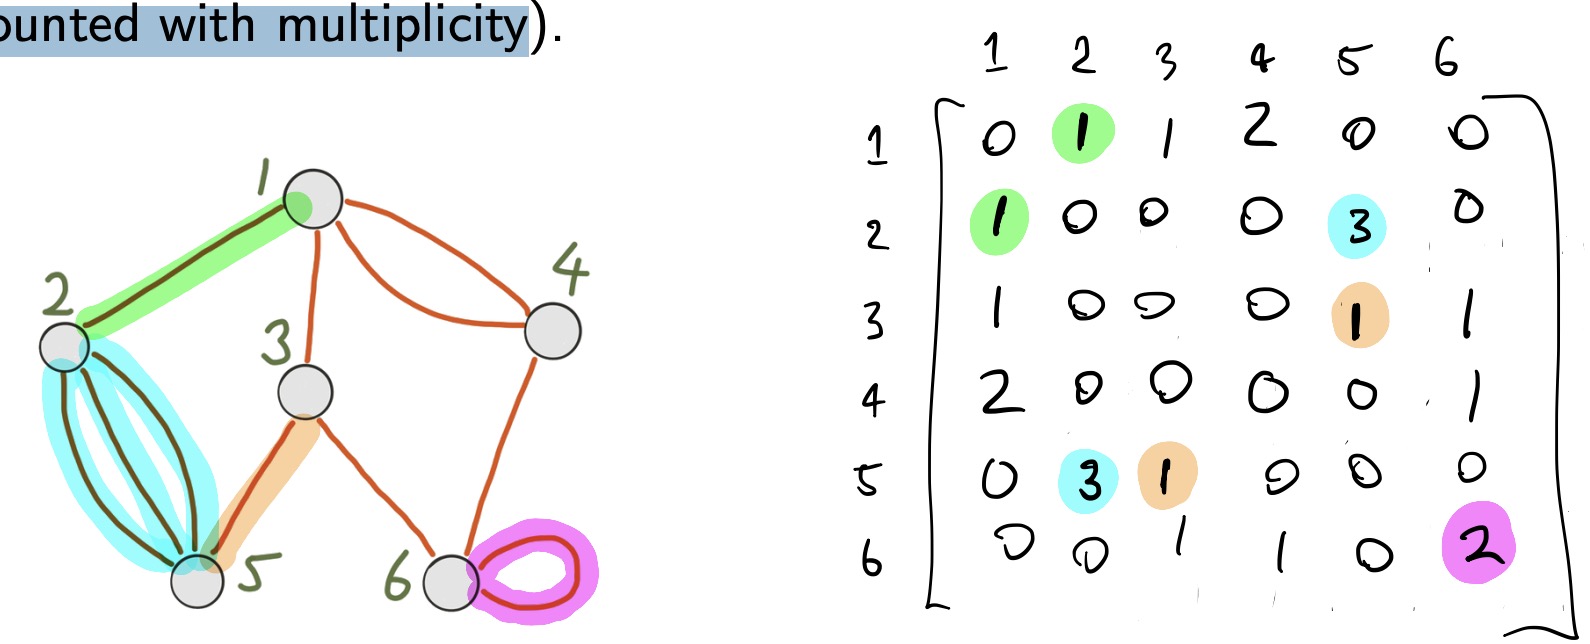 ounted with multiplicity).
1
2
3
4
5
6
1 2 3 4 5 6
1 0 1 1 2 0 0
2 1 0 0 0 3 0
3 1 0 0 0 1 1
4 2 0 0 0 0 1
5 0 3 1 0 0 0
6 0 0 1 1 0 2